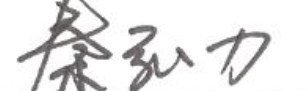 秦弘力